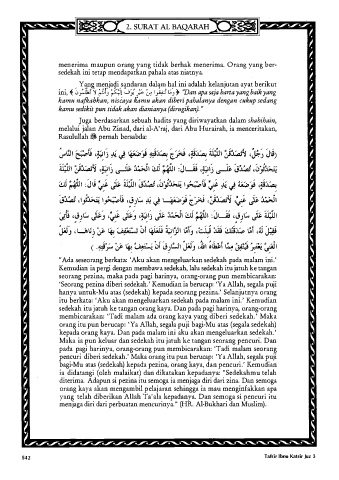 2. SURAT AL BAQARAH
menerima maupun orang yang tidak berhak menerima. Orang yang ber-
sedekah ini tetap mendapatkan pahala atas niatnya.
Yang menjadi sandaran dalam hal ini adalah kelanjutan ayat berikut
ini, ﴿ وَمَا تُنفِقُوا مِنْ خَيْرٍ يُوَفَّ إِلَيْكُمْ وَأَنتُمْ لَا تُظْلَمُونَ ﴾ "Dan apa saja harta yang baik yang
kamu nafkahkan, niscaya kamu akan diberi pahalanya dengan cukup sedang
kamu sedikit pun tidak akan dianiaya (dirugikan)."
Juga berdasarkan sebuah hadits yang diriwayatkan dalam shahihain,
melalui jalan Abu Zinad, dari al-A'raj, dari Abu Hurairah, ia menceritakan,
Rasulullah ﷺ pernah bersabda:
(قَالَ رَجُلٌ: لَأَتَصَدَّقَنَّ اللَّيْلَةَ بِصَدَقَةٍ، فَخَرَجَ بِصَدَقَتِهِ فَوَضَعَهَا فِي يَدِ زَانِيَةٍ، فَأَصْبَحَ النَّاسُ
يَتَحَدَّثُونَ، تُصُدِّقَ عَلَى زَانِيَةٍ، فَقَالَ: اللَّهُمَّ لَكَ الْحَمْدُ عَلَى زَانِيَةٍ، لَأَتَصَدَّقَنَّ اللَّيْلَةَ
بِصَدَقَةٍ، فَوَضَعَهُ فِي يَدِ غَنِيٍّ فَأَصْبَحُوا يَتَحَدَّثُونَ، تُصُدِّقَ اللَّيْلَةَ عَلَى غَنِيٍّ قَالَ: اللَّهُمَّ لَكَ
الْحَمْدُ عَلَى غَنِيٍّ لَأَتَصَدَّقَنَّ، فَخَرَجَ فَوَضَعَهَا فِي يَدِ سَارِقٍ، فَأَصْبَحُوا يَتَحَدَّثُوا، تُصُدِّقَ
اللَّيْلَةَ عَلَى سَارِقٍ، فَقَالَ: اللَّهُمَّ لَكَ الْحَمْدُ عَلَى زَانِيَةٍ، وَعَلَى غَنِيٍّ، وَعَلَى سَارِقٍ، فَأُتِيَ
فَقِيلَ لَهُ، أَمَّا صَدَقَتُكَ فَقَدْ قُبِلَتْ، وَأَمَّا الزَّانِيَةُ فَلَعَلَّهَا أَنْ تَسْتَعِفَّ بِهَا عَنْ زِنَاهَا، وَلَعَلَّ
الْغَنِيَّ يَعْتَبِرُ فَيُنْفِقَ مِمَّا أَعْطَاهُ اللهُ، وَلَعَلَّ السَّارِقَ أَنْ يَسْتَعِفَّ بِهَا عَنْ سَرِقَتِهِ.)
"Ada seseorang berkata: 'Aku akan mengeluarkan sedekah pada malam ini.'
Kemudian ia pergi dengan membawa sedekah, lalu sedekah itu jatuh ke tangan
seorang pezina, maka pada pagi harinya, orang-orang pun membicarakan:
'Seorang pezina diberi sedekah.' Kemudian ia berucap: 'Ya Allah, segala puji
hanya untuk-Mu atas (sedekah) kepada seorang pezina.' Selanjutnya orang
itu berkata: 'Aku akan mengeluarkan sedekah pada malam ini.' Kemudian
sedekah itu jatuh ke tangan orang kaya. Dan pada pagi harinya, orang-orang
membicarakan: 'Tadi malam ada orang kaya yang diberi sedekah.' Maka
orang itu pun berucap: 'Ya Allah, segala puji bagi-Mu atas (segala sedekah)
kepada orang kaya. Dan pada malam ini aku akan mengeluarkan sedekah.'
Maka ia pun keluar dan sedekah itu jatuh ke tangan seorang pencuri. Dan
pada pagi harinya, orang-orang pun membicarakan: 'Tadi malam seorang
pencuri diberi sedekah.' Maka orang itu pun berucap: 'Ya Allah, segala puji
bagi-Mu atas (sedekah) kepada pezina, orang kaya, dan pencuri.' Kemudian
ia didatangi (oleh malaikat) dan dikatakan kepadanya: "Sedekahmu telah
diterima. Adapun si pezina itu semoga ia menjaga diri dari zina. Dan semoga
orang kaya akan mengambil pelajaran sehingga ia mau menginfakkan apa
yang telah diberikan Allah Ta'ala kepadanya. Dan semoga si pencuri itu
menjaga diri dari perbuatan mencurinya." (HR. Al-Bukhari dan Muslim).
542
Tafsir Ibnu Katsir Juz 3